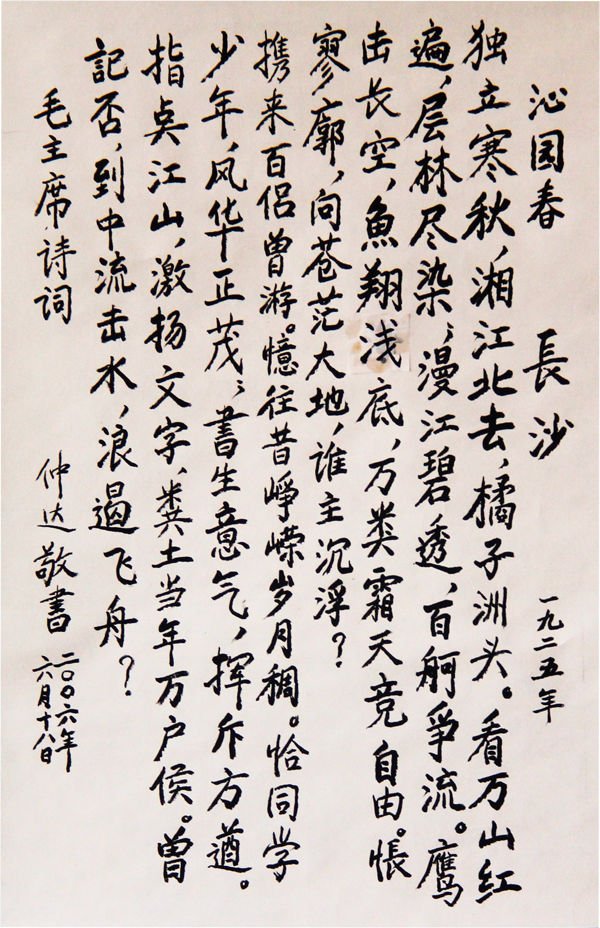 沁园春 長沙 一九二五年
独立寒秋，湘江北去，橘子洲头。看万山红
遍，层林尽染；漫江碧透，百舸爭流。鹰
击长空，魚翔浅底，万类霜天竞自由。悵
寥廓，问苍茫大地，谁主沉浮？
携来百侣曾游。憶往昔峥嵘岁月稠。恰同学
少年，风华正茂；書生意气，揮斥方遒。
指奌江山，激扬文字，粪土当年万户侯。曾
記否，到中流击水，浪遏飞舟？
毛主席诗词 仲达敬書
二〇〇六年
六月十八日